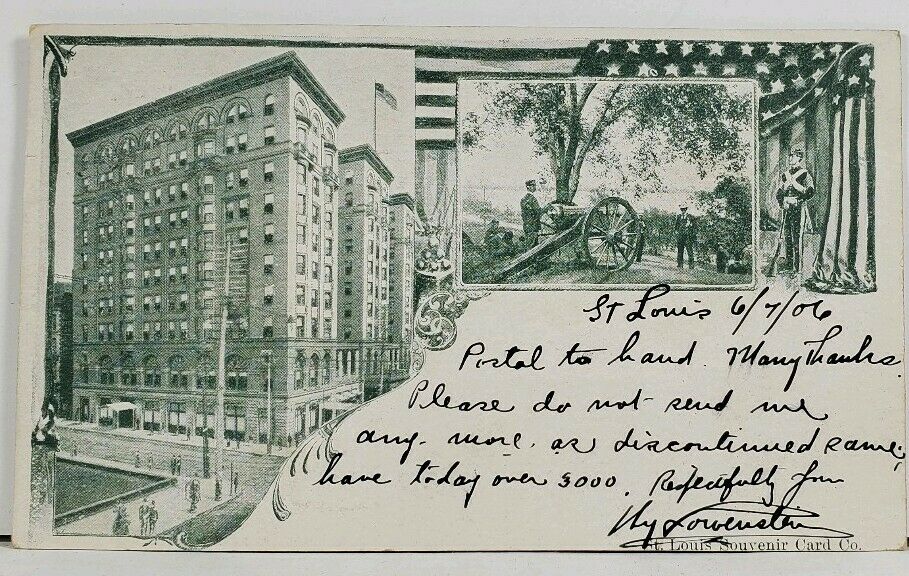 St Louis 6/7/06
Postal to hand. Many thanks.
Please do not send me
any more. as discontinued same,
have today over 3000. Respectfully Yours
Hy Lowenstein
St. Louis Souvenir Card Co.